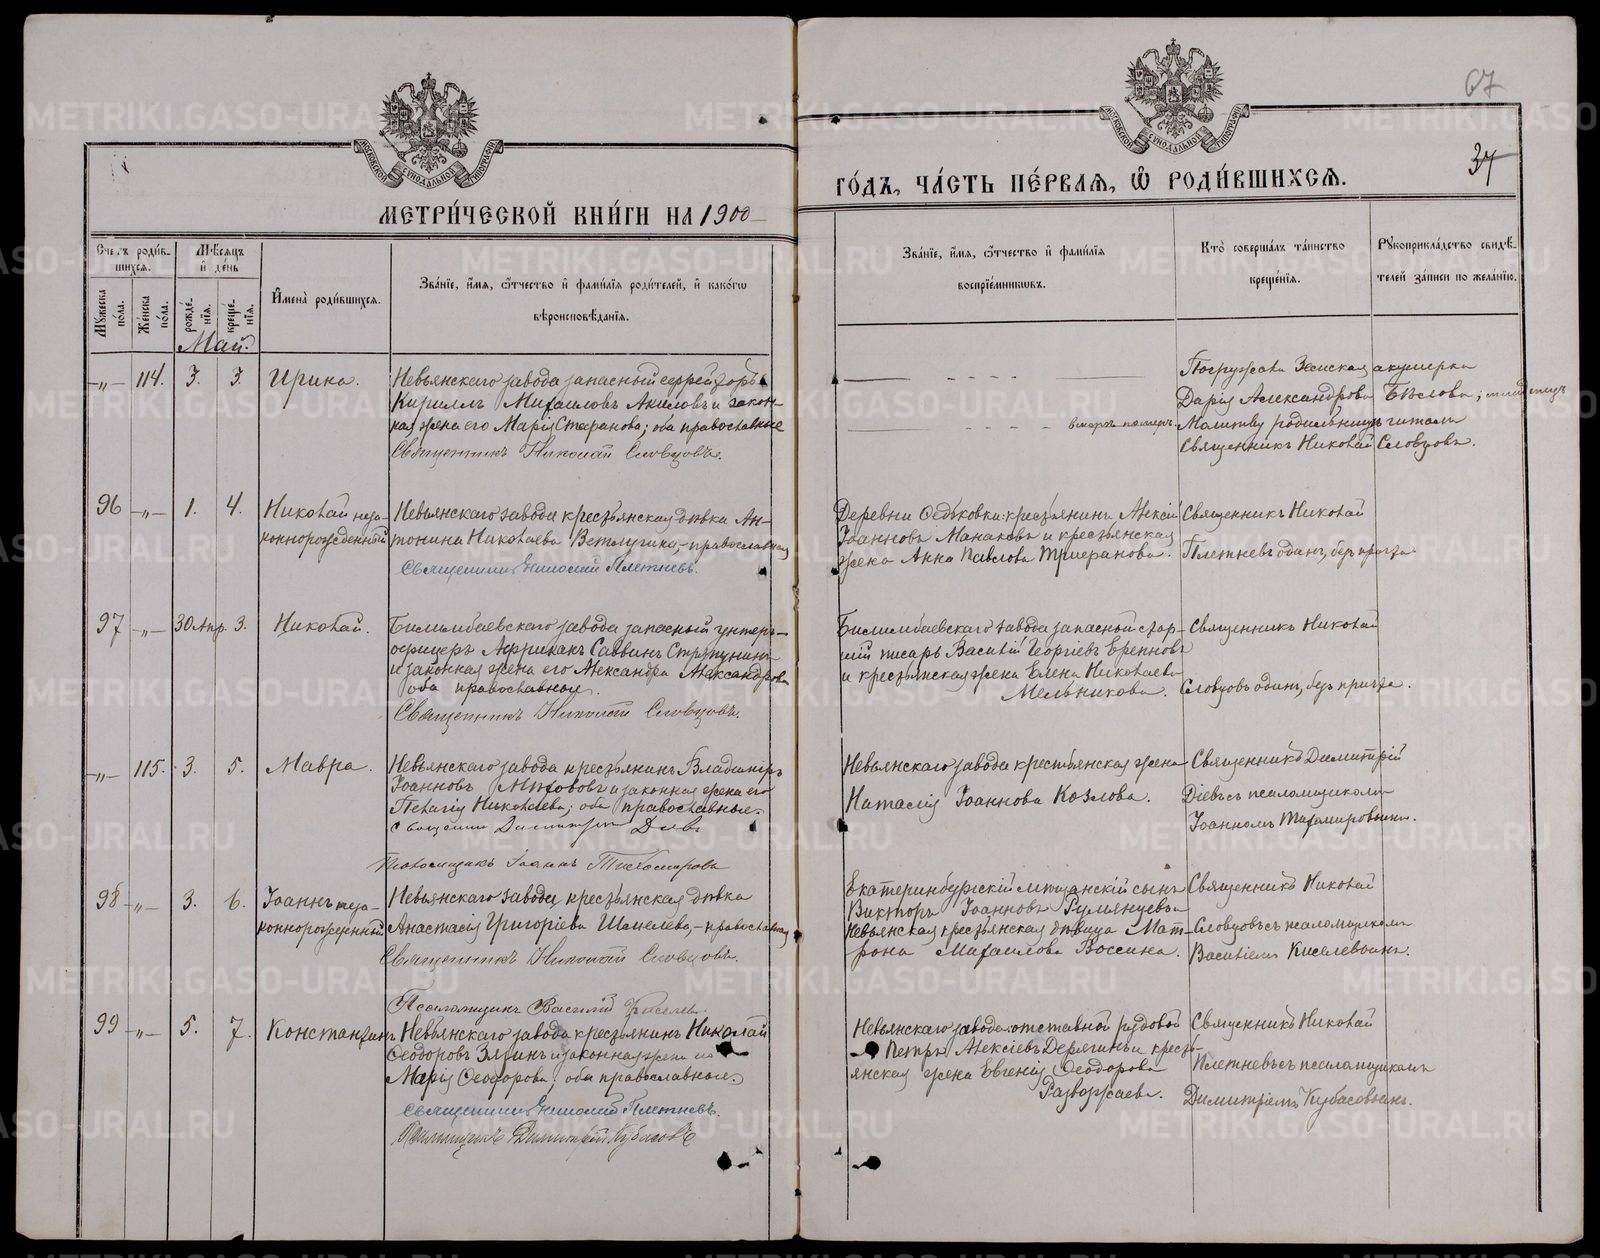 67
37
МЕТРИ́ЧЕСКОЙ КНИ́ГИ НА 1900
ГО́ДЪ, ЧА́СТЬ ПЕ́РВАЯ, Ѽ РОДИ́ВШИХСЯ.
Сче́тъ роди́в-
шихся.
Му́жеска по́ла.
Же́нска по́ла.
Мѣ́сяцъ и де́нь
рожде́-нїя.
креще́-нїя.
И҆мена̀ роди́вшихся.
Зва́нїе, и҆́мя, ѻ҆́тчество и҆ фами́лїя роди́телей, и҆ како́гѡ
вѣроисповѣ́данїя.
Зва́нїе, и҆́мя, ѻ҆́тчество и҆ фами́лїя
воспрїе́мникѡвъ.
Кто̀ соверша́лъ та́инство
креще́нїя.
Рукоприкла́дство свидѣ́-
телей за́писи по жела́нїю.
Май.
-„- 114. 3. 3. Ирина.
Невьянскаго завода запасный ефрейторъ
Кириллъ Михаиловъ Акиловъ и закон-
ная жена его Марія Стефанова; оба православные
Священникъ Николай Словцовъ.
Погружала Земская акушерка
Дарія Александрова Бѣлова;
Молитву родильницѣ читалъ
Священникъ Николай Словцовъ.
96 -„- 1. 4. Николай неза-
коннорожденный
Невьянскаго завода крестьянская дѣвка Ан-
тонина Николаева Ветлугина, - православная
Священникъ Николай Плетневъ.
Деревни Федьковки крестьянинъ Алексій
Іоанновъ Манаковъ и крестьянская
жена Анна Павлова Трифанова.
Священникъ Николай
Плетневъ одинъ, безъ причта.
97 -„- 30 Апр. 3. Николай.
Билимбаевскаго завода запасный унтеръ-
офицеръ Африканъ Саввинъ Стряпунинъ
и законная жена его Александра Александрова
оба православные.
Священникъ Николай Словцовъ.
Билимбаевскаго завода запасный стар-
шій писарь Василій Георгіевъ Еренновъ
и крестьянская жена Елена Николаева
Мельникова.
Священникъ Николай
Словцовъ одинъ, безъ причта.
-„- 115. 3. 5. Мавра.
Невьянскаго завода крестьянинъ Владиміръ
Іоанновъ и законная жена его
Пелагія Николаева; оба православные.
Священникъ Димитрій Діевъ
Псаломщикъ Іоаннъ Тихомировъ
Невьянскаго завода крестьянская жена
Наталія Іоаннова Козлова.
Священникъ Димитрій
Діевъ съ псаломщикомъ
Іоанномъ Тихомировымъ.
98 -„- 3. 6. Іоаннъ неза-
коннорожденный
Невьянскаго завода крестьянская дѣвка
Анастасія Григоріева Шанелева, - православная
Священникъ Николай Словцовъ.
Псаломщикъ Василій Киселевъ
Екатеринбургскій мѣщанскій сынъ
Викторъ Іоанновъ Румянцевъ
Невьянская крестьянская дѣвица Мат-
рона Михаилова Воссина.
Священникъ Николай
Словцовъ съ псаломщикомъ
Василіемъ Киселевымъ.
99 -„- 5. 7. Константинъ
Невьянскаго завода крестьянинъ Николай
Феодоровъ и законная жена его
Марія Феодорова; оба православные.
Священникъ Николай Плетневъ.
Псаломщикъ Димитрій Кубасовъ
Невьянскаго завода отставной рядовой
Петръ Алексіевъ Дерягинъ и кресть-
янская жена Евгенія Феодорова
Разворжаева.
Священникъ Николай
Плетневъ съ псаломщикомъ
Димитріемъ Кубасовымъ.